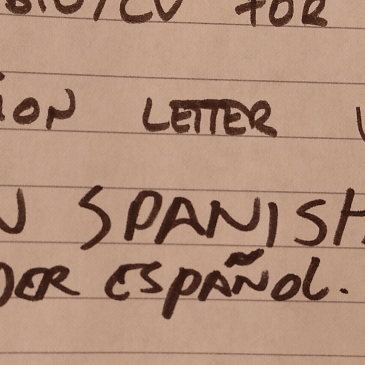 BIO/CV FOR
ION LETTER
N SPANISH
DER ESPAÑOL.